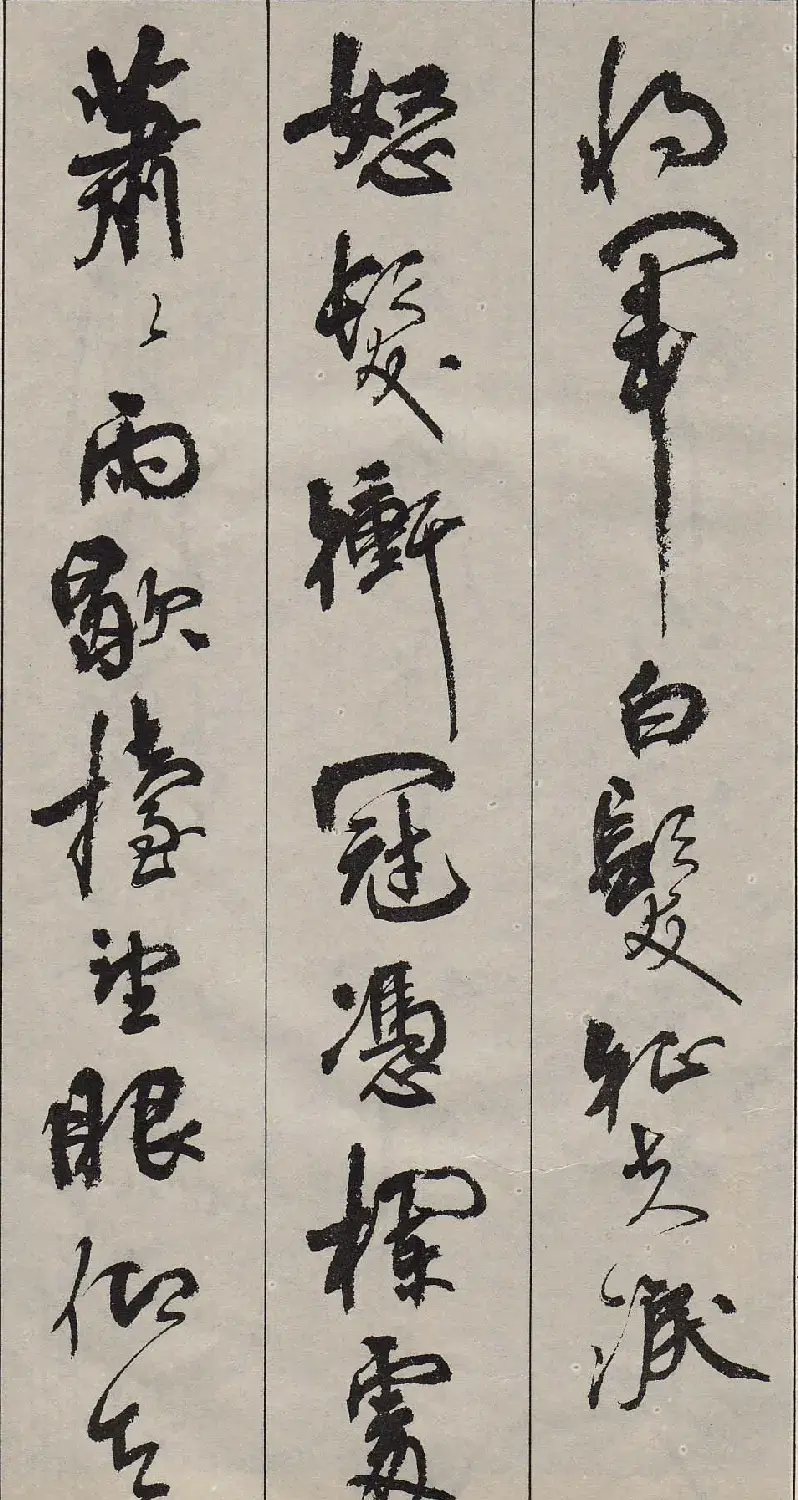 将軍白髮征夫淚
怒髮衝冠憑欄處
蕭〻雨歇擡望眼仰天